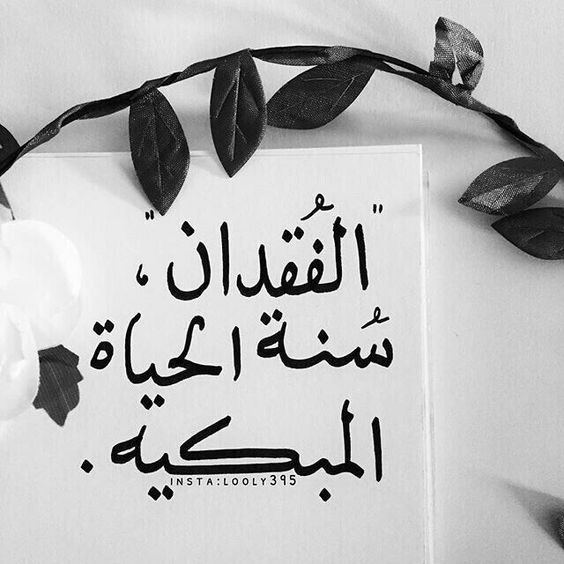 "الفُقدان"،
سُنة الحياة
المبكيه.
INSTA:LOOLY395